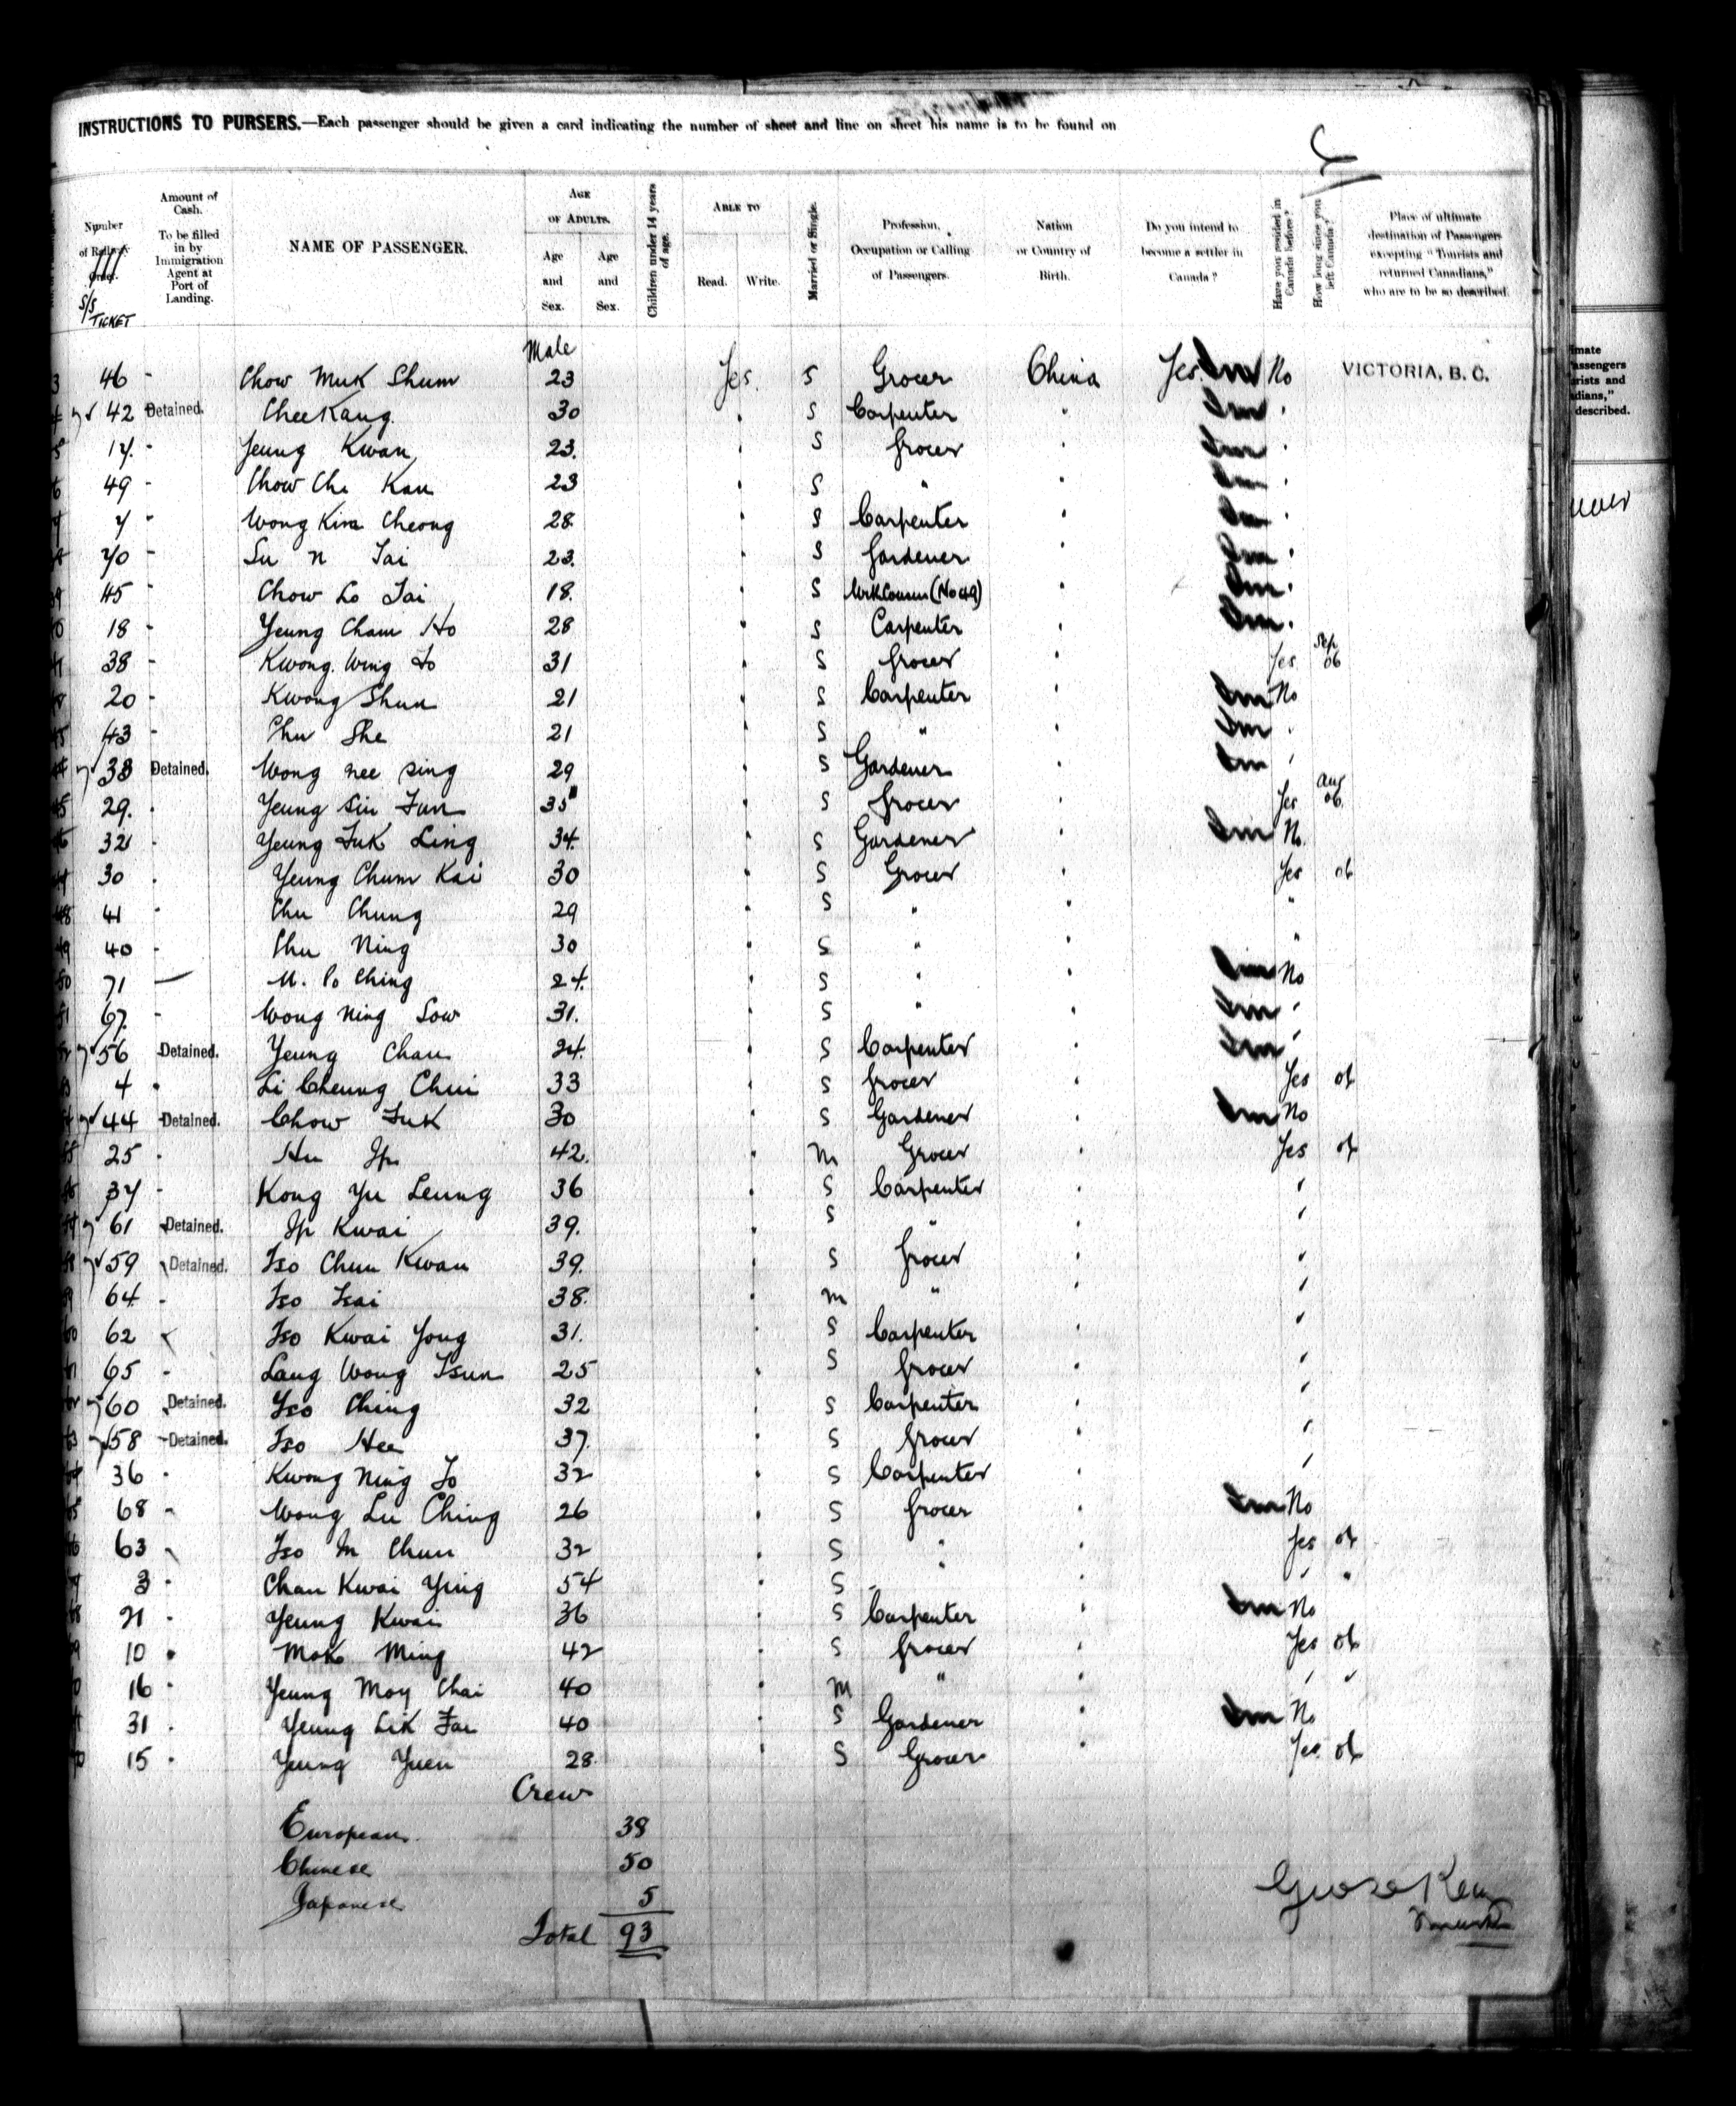 INSTRUCTIONS TO PURSERS.—Each passenger should be given a card indicating the number of sheet and line on sheet his name is to be found on
Number of Railway Order. S/S TICKET
Amount of Cash. To be filled in by Immigration Agent at Port of Landing.
NAME OF PASSENGER.
AGE OF ADULTS.
Age and Sex. Age and Sex.
Children under 14 years of age.
ABLE TO
Read. Write.
Married or Single.
Profession, Occupation or Calling of Passengers.
Nation or Country of Birth.
Do you intend to become a settler in Canada?
Have you resided in Canada before?
How long since you left Canada?
Place of ultimate destination of Passengers excepting "Tourists and returned Canadians," who are to be so described.
Male
46 - Chow Muk Shum 23 Yes. S Grocer China Yes No VICTORIA, B. C.
42 Detained. Chee Kang. 30 " S Carpenter " "
17. - Yeung Kwan 23. " S Grocer " "
49 - Chow Chi Kau 23 " S " " "
7 - Wong Kim Cheong 28. " S Carpenter " "
70 - Su n Tai 23. " S Gardener " "
45 - Chow Lo Tai 18. " S (No 49) " "
18 - Yeung Cham Ho 28 " S Carpenter " "
38 - Kwong Wing To 31 " S Grocer " Yes Sep 06
20 - Kwong Shun 21 " S Carpenter " No
43 - Chu She 21 " S " " "
33 Detained. Wong nee sing 29 " S Gardener " "
29. - Yeung Siu Fun 35 " S Grocer " Yes Aug 06.
32 - Yeung Fuk Ling 34. " S Gardener " No.
30 - Yeung Chum Kai 30 " S Grocer " Yes 06
41 - Chu Chung 29 " S " " "
40 - Chu Ning 30 " S " " "
71 — U. Po Ching 24. " S " " No
67. - Wong Ning Sow 31. " S " " "
56 Detained. Yeung Chau 24. " S Carpenter " "
4 - Li Cheung Chui 33 " S Grocer " Yes 06
44 Detained. Chow Fuk 30 " S Gardener " No
25 - Hu Ip 42. " M Grocer " Yes 06
37 - Kong Yu Leung 36 " S Carpenter " "
61 Detained. Ip Kwai 39. " S " " "
59 Detained. Tso Chun Kwan 39. " S Grocer " "
64. - Tso Tsai 38. " M " " "
62 Tso Kwai Yong 31. " S Carpenter " "
65 - Lang Wong Tsun 25 " S Grocer " "
60 Detained. Tso Ching 32 " S Carpenter " "
58 Detained. Tso Hee 37. " S Grocer " "
36 - Kwong Ning To 32 " S Carpenter " "
68 - Wong Lu Ching 26 " S Grocer " No
63 Tso In Chun 32 " S " " Yes 06
3 - Chan Kwai Ying 54 " S " " " "
21 - Yeung Kwai 36 " S Carpenter " No
10 - Mok Ming 42 " S Grocer " Yes 06
16 - Yeung Moy Chai 40 " M " " " "
31 - Yeung Lik Fai 40 " S Gardener " No
15 - Yeung Yuen 28. " S Grocer " Yes. 06
Crew
European. 38
Chinese 50
Japanese 5
Total 93